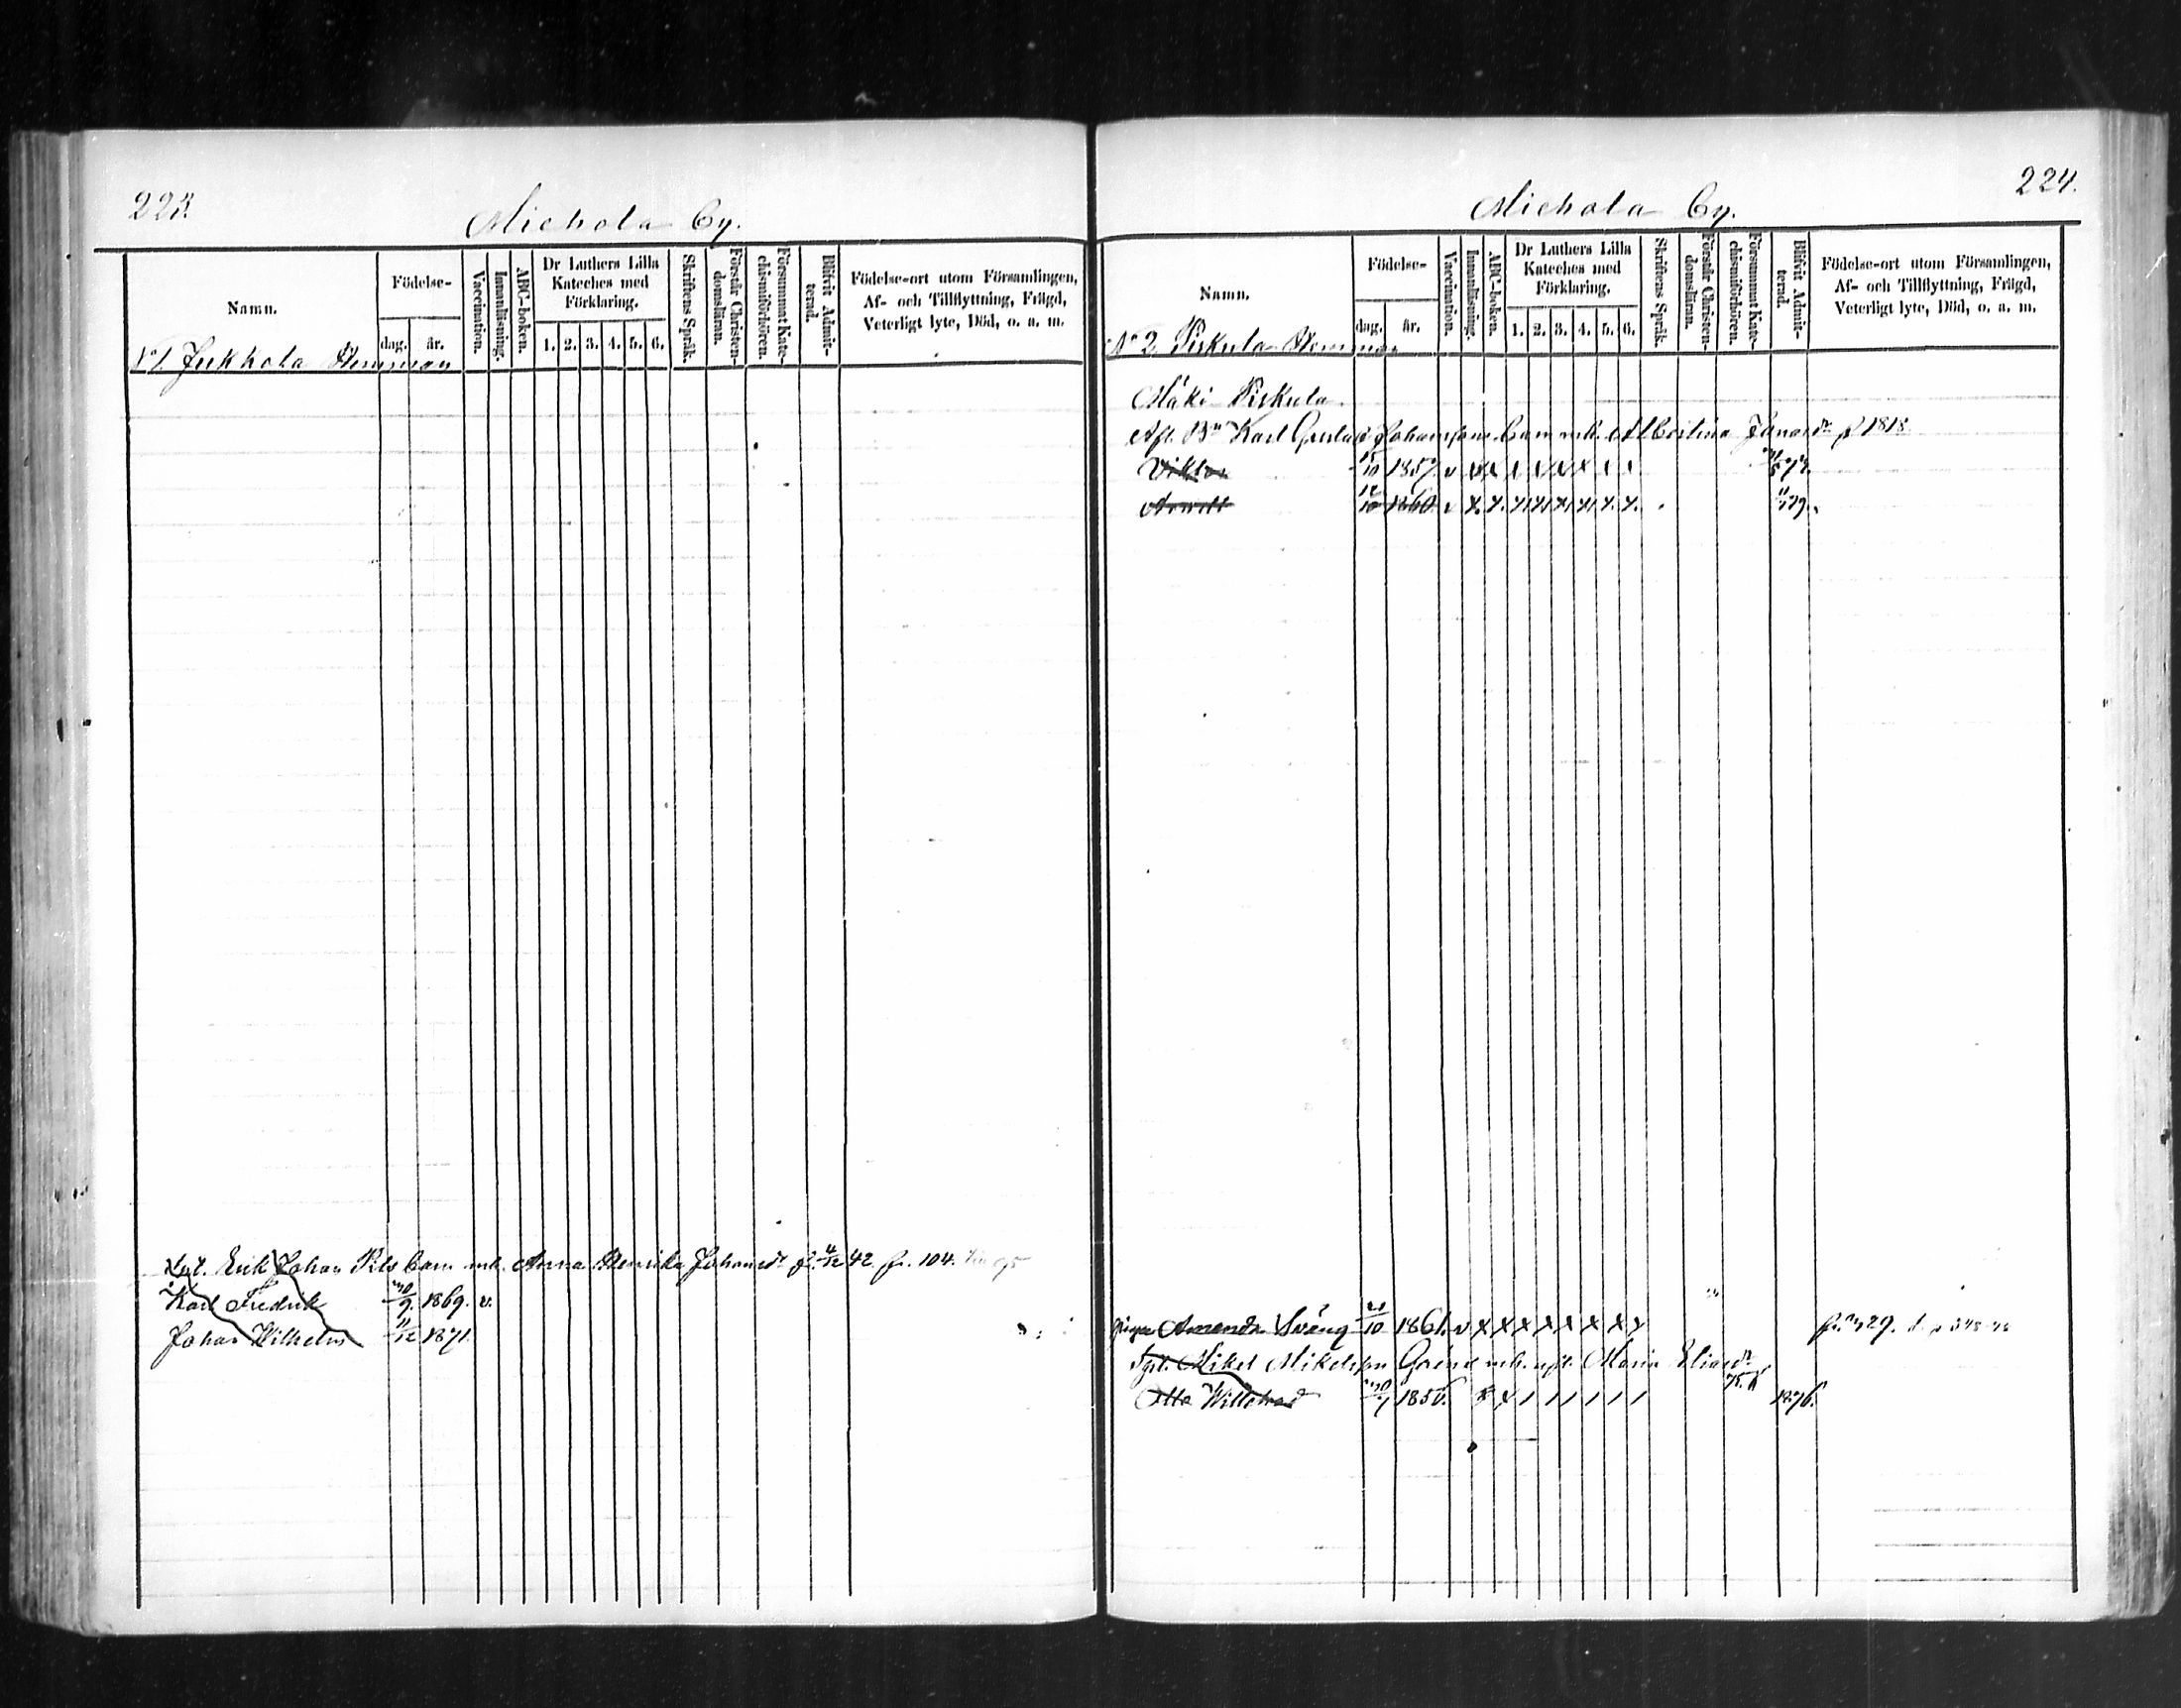 223.
Michola By.
Namn.
Födelse-
dag.
år.
Vaccination.
Innanläsning.
ABC-boken.
Dr Luthers Lilla
Kateches med
Förklaring.
1. 2. 3. 4. 5. 6.
Skriftens Språk.
Förstår Christen-
domsläran.
Försummat Kate-
chismiförhören.
Blifvit Admit-
terad.
Födelse-ort utom Församlingen,
Af- och Tillflyttning, Frägd,
Veterligt lyte, Död, o. a. m.
N 1. Jukkola Hemman
Erik Johan barn m. Anna Henrika Johansdr f. 4/12 42. fr. 104.
Karl Fredrik 9. 1869. v.
Johan Wilhelm 11/12 1871.
224.
Michola By.
Namn.
Födelse-
dag.
år.
Vaccination.
Innanläsning.
ABC-boken.
Dr Luthers Lilla
Kateches med
Förklaring.
1. 2. 3. 4. 5. 6.
Skriftens Språk.
Förstår Christen-
domsläran.
Försummat Kate-
chismiförhören.
Blifvit Admit-
terad.
Födelse-ort utom Församlingen,
Af- och Tillflyttning, Frägd,
Veterligt lyte, Död, o. a. m.
N 2. Piskula Hemman
Mäki Piskula.
Afl. Bn Karl Gustaf Johansson barn m. Albertina f 1818.
Viktor 15/10 1857. v x x x x x x x x
12/10 1860. v x. x. x x x x x. x.
Amanda Sväng 21/10 1861. v x x x x x x x x 29.
Mikel Mikelsson m. Maria Eliasdr
Otto 1856. x x 1 1 1 1 1 1 1876.